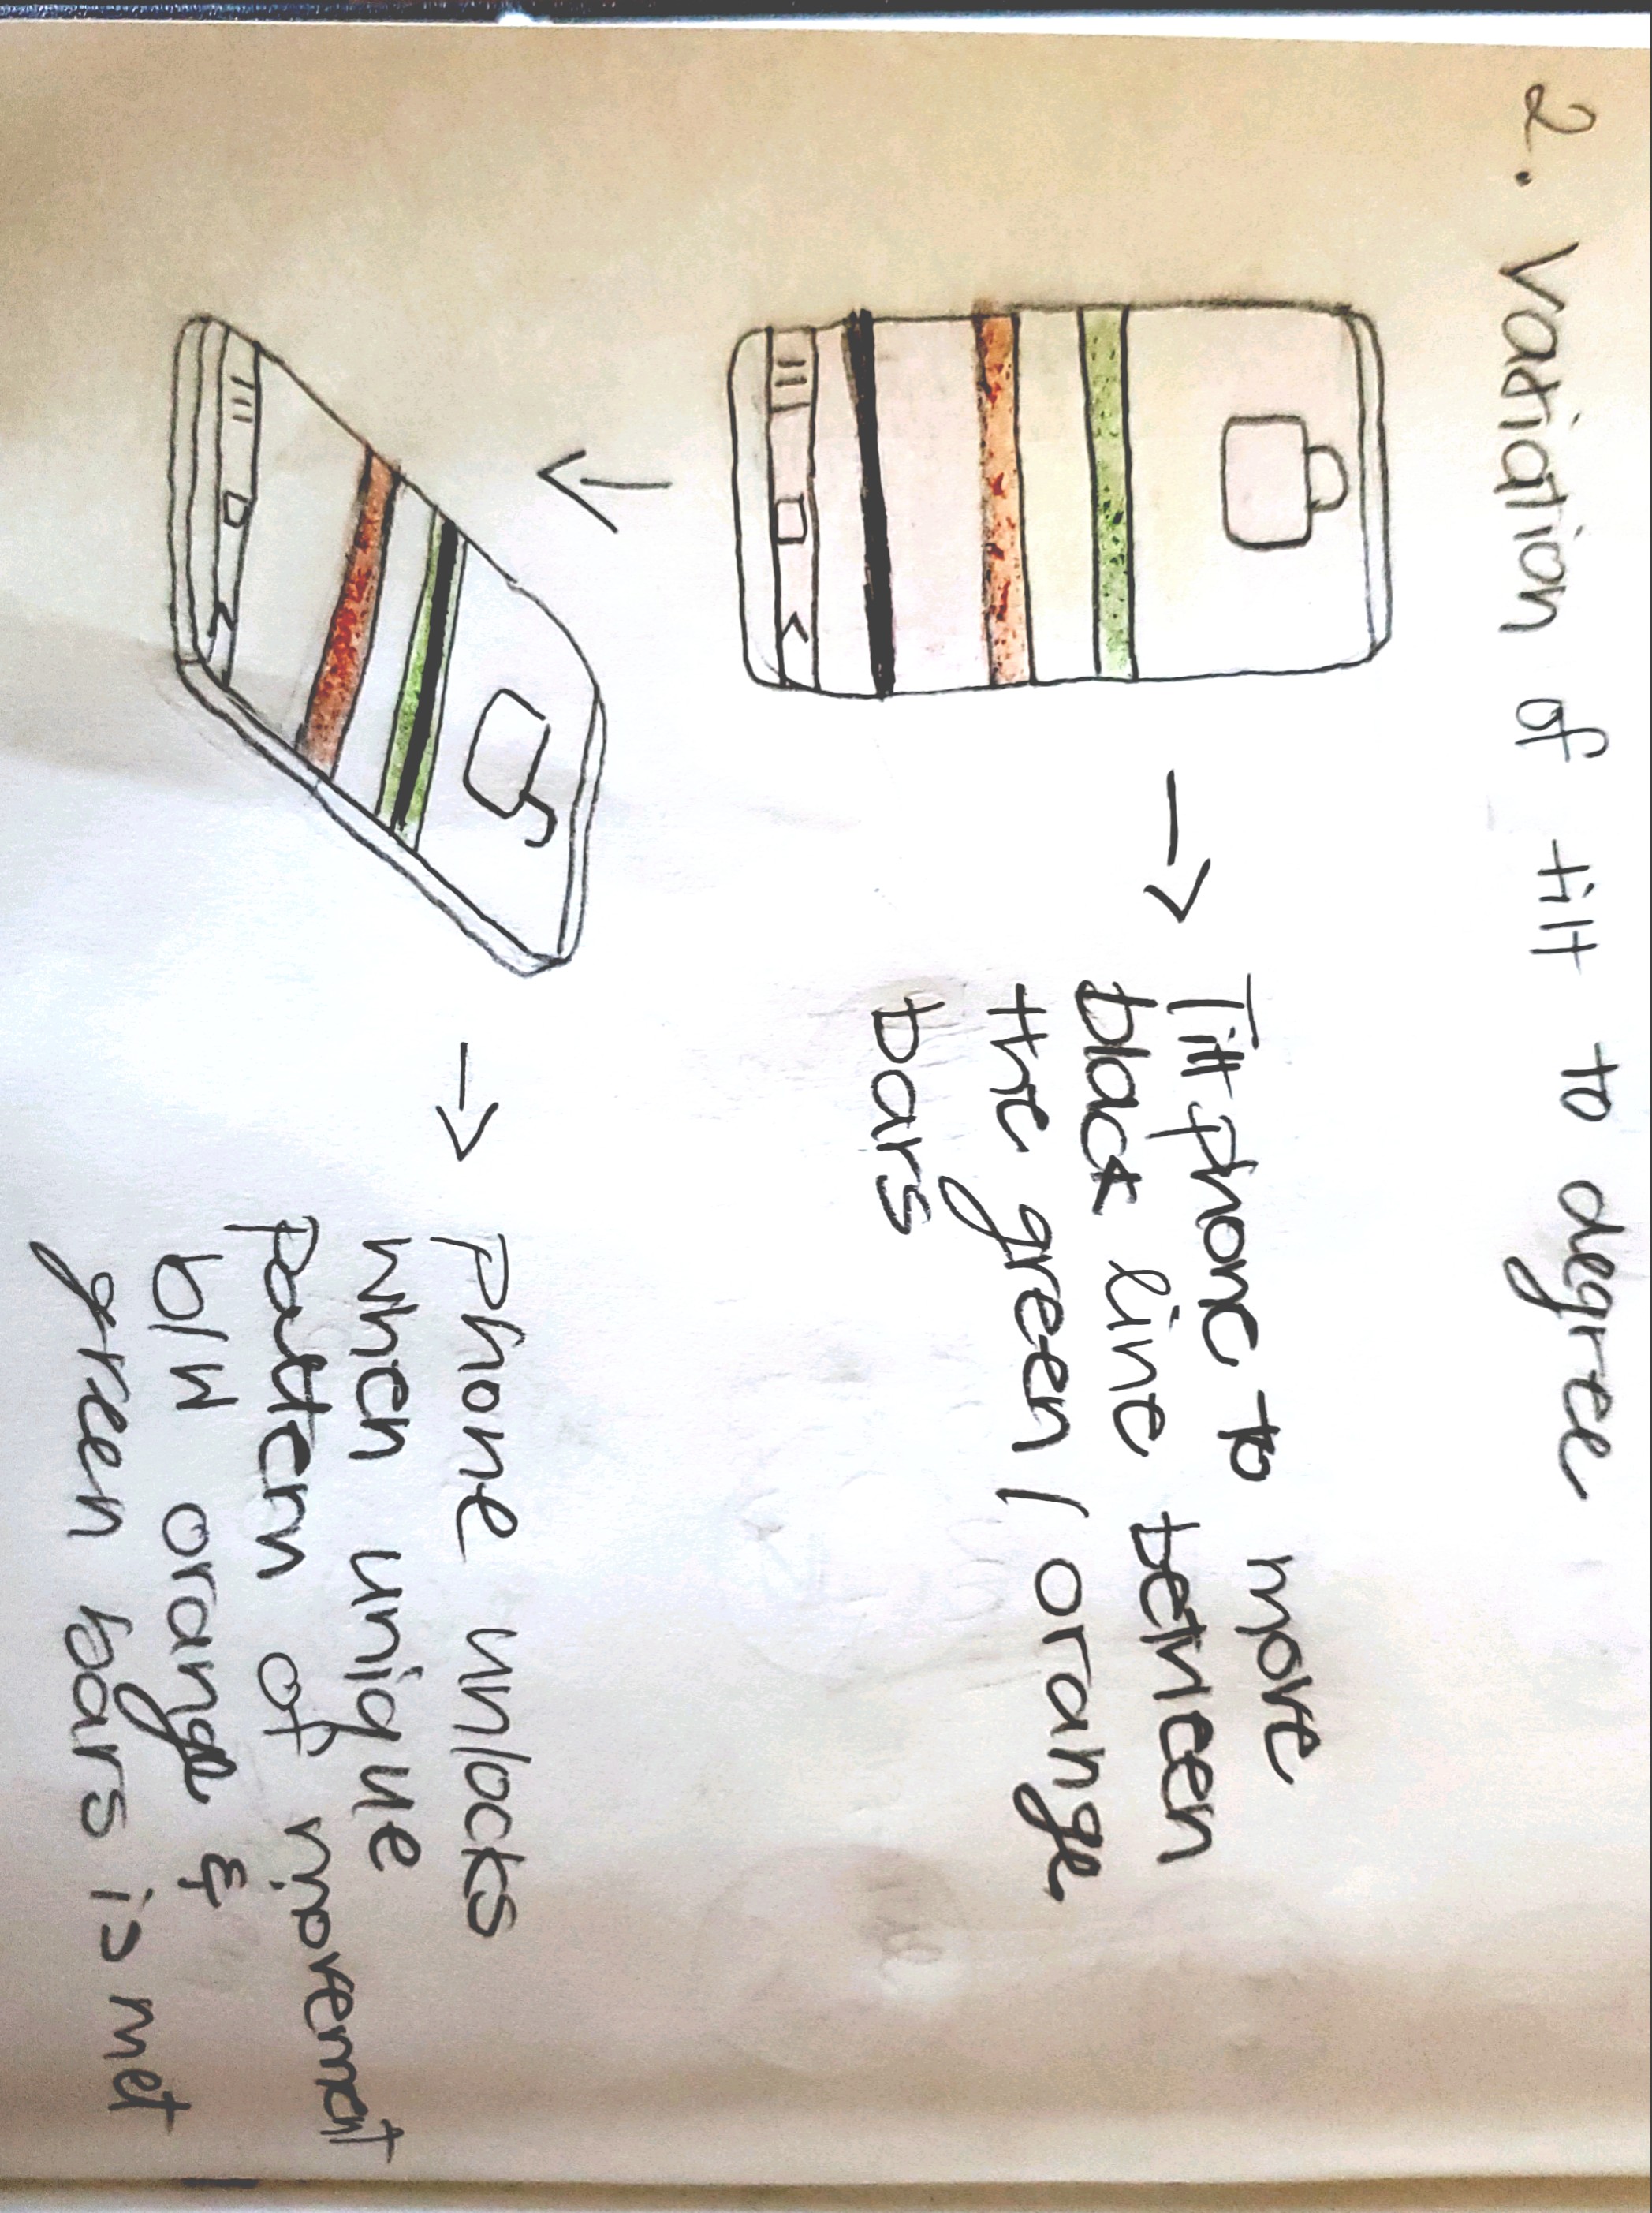 2. Variation of tilt to degree
Tilt phone to move
black line between
the green / orange
bars
phone unlocks
when unique
pattern of movement
b/w orange &
green bars is met